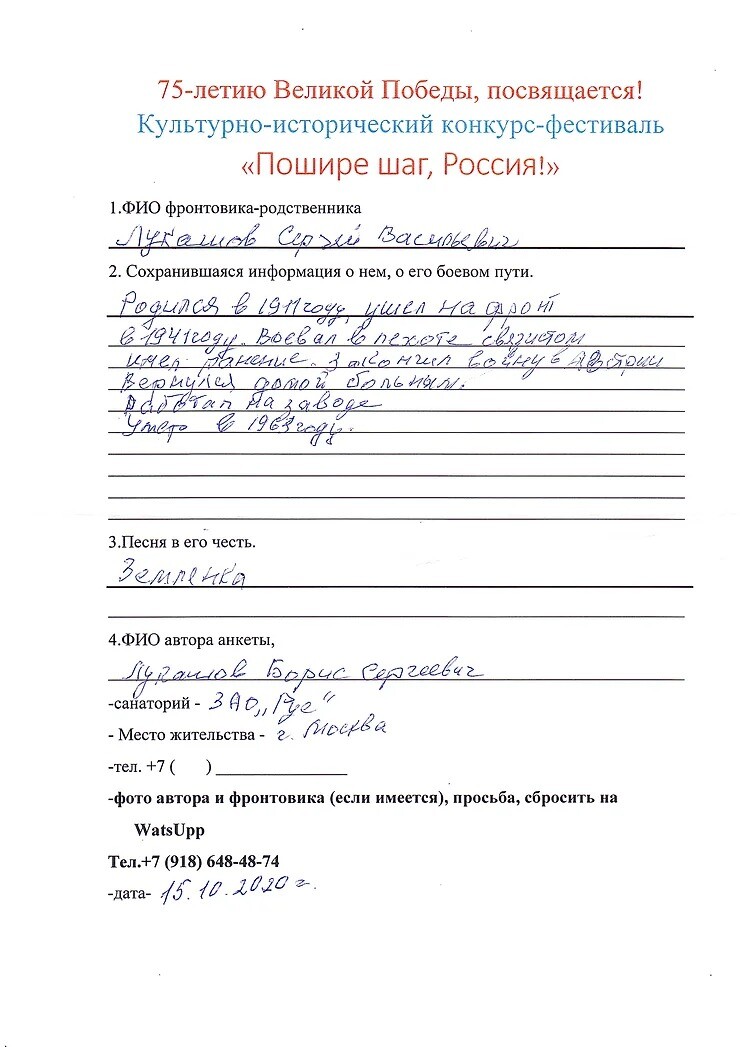 75-летию Великой Победы, посвящается!
Культурно-исторический конкурс-фестиваль
«Пошире шаг, Россия!»
1.ФИО фронтовика-родственника
Лукашов Сергей Васильевич
2. Сохранившаяся информация о нем, о его боевом пути.
Родился в 1911 году, ушел на фронт
в 1941 году. Воевал в пехоте связистом
имел ранение. Закончил войну в Австрии
Вернулся домой больным.
Работал на заводе
Умер в году.
3.Песня в его честь.
Землянка
4.ФИО автора анкеты,
Лукашов Борис Сергеевич
-санаторий - ЗАО „Русь"
- Место жительства - г. Москва
-тел. +7 ( ) _______________
-фото автора и фронтовика (если имеется), просьба, сбросить на
WatsUpp
Тел.+7 (918) 648-48-74
-дата- 15.10.2020 г.